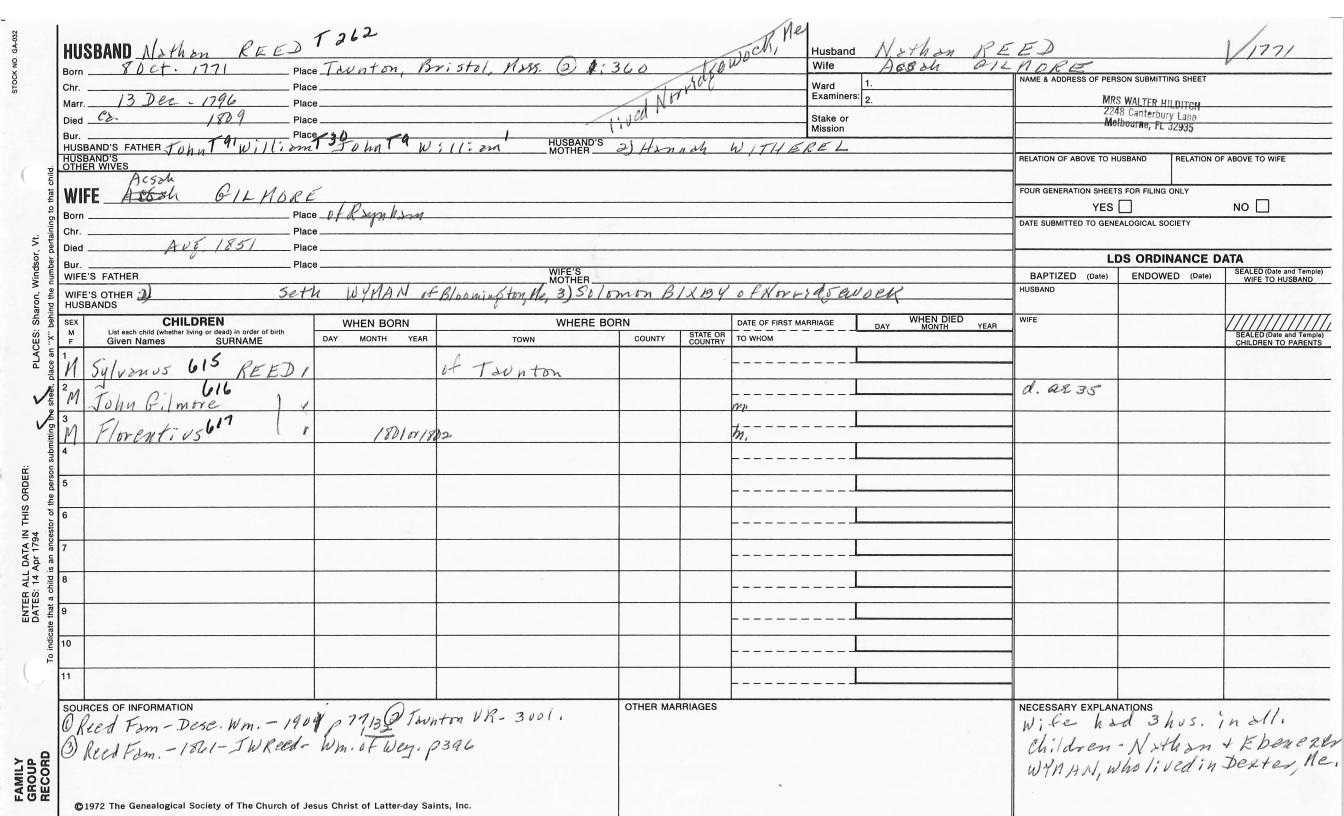 STOCK NO. GA-032
HUSBAND Nathan REED T262
Born 8 Oct. 1771 Place Taunton, Bristol, Mass. ② 1:360
Chr. Place
Marr. 13 Dec - 1796 Place
Died ca. 1809 Place
Bur. Place
lived Norridgewock, Me
HUSBAND'S FATHER John T91 William T30 John T9 William 1 HUSBAND'S MOTHER 2) Hannah WITHEREL
HUSBAND'S OTHER WIVES
Acsah
WIFE GILMORE
Born Place of Raynham
Chr. Place
Died Aug 1851 Place
Bur. Place
WIFE'S FATHER WIFE'S MOTHER
WIFE'S OTHER HUSBANDS 2) Seth WYMAN of Bloomington, Me, 3) Solomon BIXBY of Norridgewock
Husband Nathan REED √1771
Wife Acsah GILMORE
Ward Examiners: 1.
2.
Stake or Mission
NAME & ADDRESS OF PERSON SUBMITTING SHEET
MRS WALTER HILDITCH
2248 Canterbury Lane
Melbourne, FL 32935
RELATION OF ABOVE TO HUSBAND RELATION OF ABOVE TO WIFE
FOUR GENERATION SHEETS FOR FILING ONLY
YES NO
DATE SUBMITTED TO GENEALOGICAL SOCIETY
LDS ORDINANCE DATA
BAPTIZED (Date) ENDOWED (Date) SEALED (Date and Temple) WIFE TO HUSBAND
HUSBAND
WIFE
SEALED (Date and Temple) CHILDREN TO PARENTS
SEX M F
CHILDREN
List each child (whether living or dead) in order of birth
Given Names SURNAME
WHEN BORN
DAY MONTH YEAR
WHERE BORN
TOWN COUNTY STATE OR COUNTRY
DATE OF FIRST MARRIAGE
TO WHOM
WHEN DIED
DAY MONTH YEAR
1 M Sylvanus 615 REED of Taunton
2 M John Gilmore 616 m. d. ae 35
3 M Florentius 617 1801 or 1802 m.
4
5
6
7
8
9
10
11
SOURCES OF INFORMATION
① Reed Fam - Desc. Wm. - 1901 p 77, 132 ② Taunton VR - 3001.
③ Reed Fam. - 1861 - JW Reed - Wm. of Wey. p396
OTHER MARRIAGES
NECESSARY EXPLANATIONS
Wife had 3 hus. in all.
Children - Nathan & Ebenezer
WYMAN, who lived in Dexter, Me.
©1972 The Genealogical Society of The Church of Jesus Christ of Latter-day Saints, Inc.
ENTER ALL DATA IN THIS ORDER:
DATES: 14 Apr 1794 PLACES: Sharon, Windsor, Vt.
To indicate that a child is an ancestor of the person submitting the sheet, place an "X" behind the number pertaining to that child.
FAMILY
GROUP
RECORD